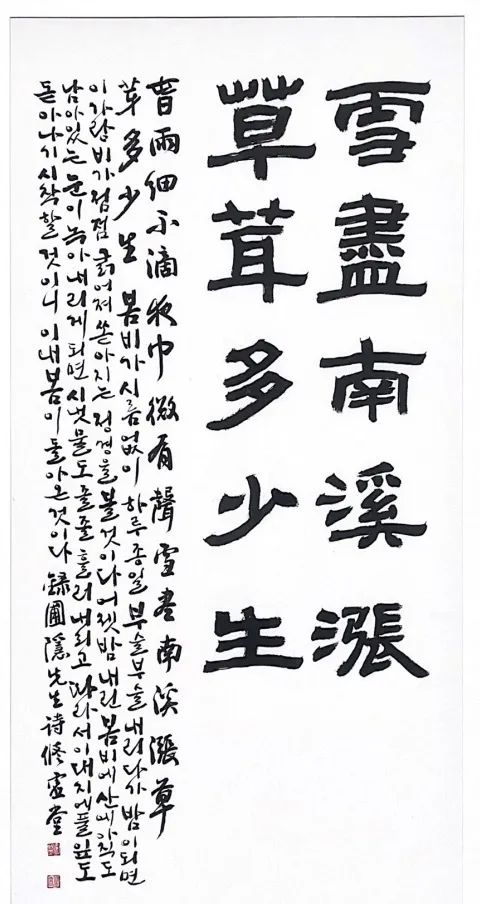 雪盡南溪漲
草茸多少生
春雨細不滴夜中微有聲雪盡南溪漲草
多少生 봄비가 시름없이 하루종일 부슬부슬 내리다가 밤이되면
이가랑비가 점점 굵어져 쏟아지는 정경을 볼것이다 어젯밤 내린 봄비에 산에 아직도
남아있는 눈이 녹아내리게 되면 시냇물도 줄줄 흘러내리고 따라서 이 대지에 풀잎도
돋아나기 시작할것이니 이내 봄이 돌아온것이다 錄圃隱先生詩 修堂